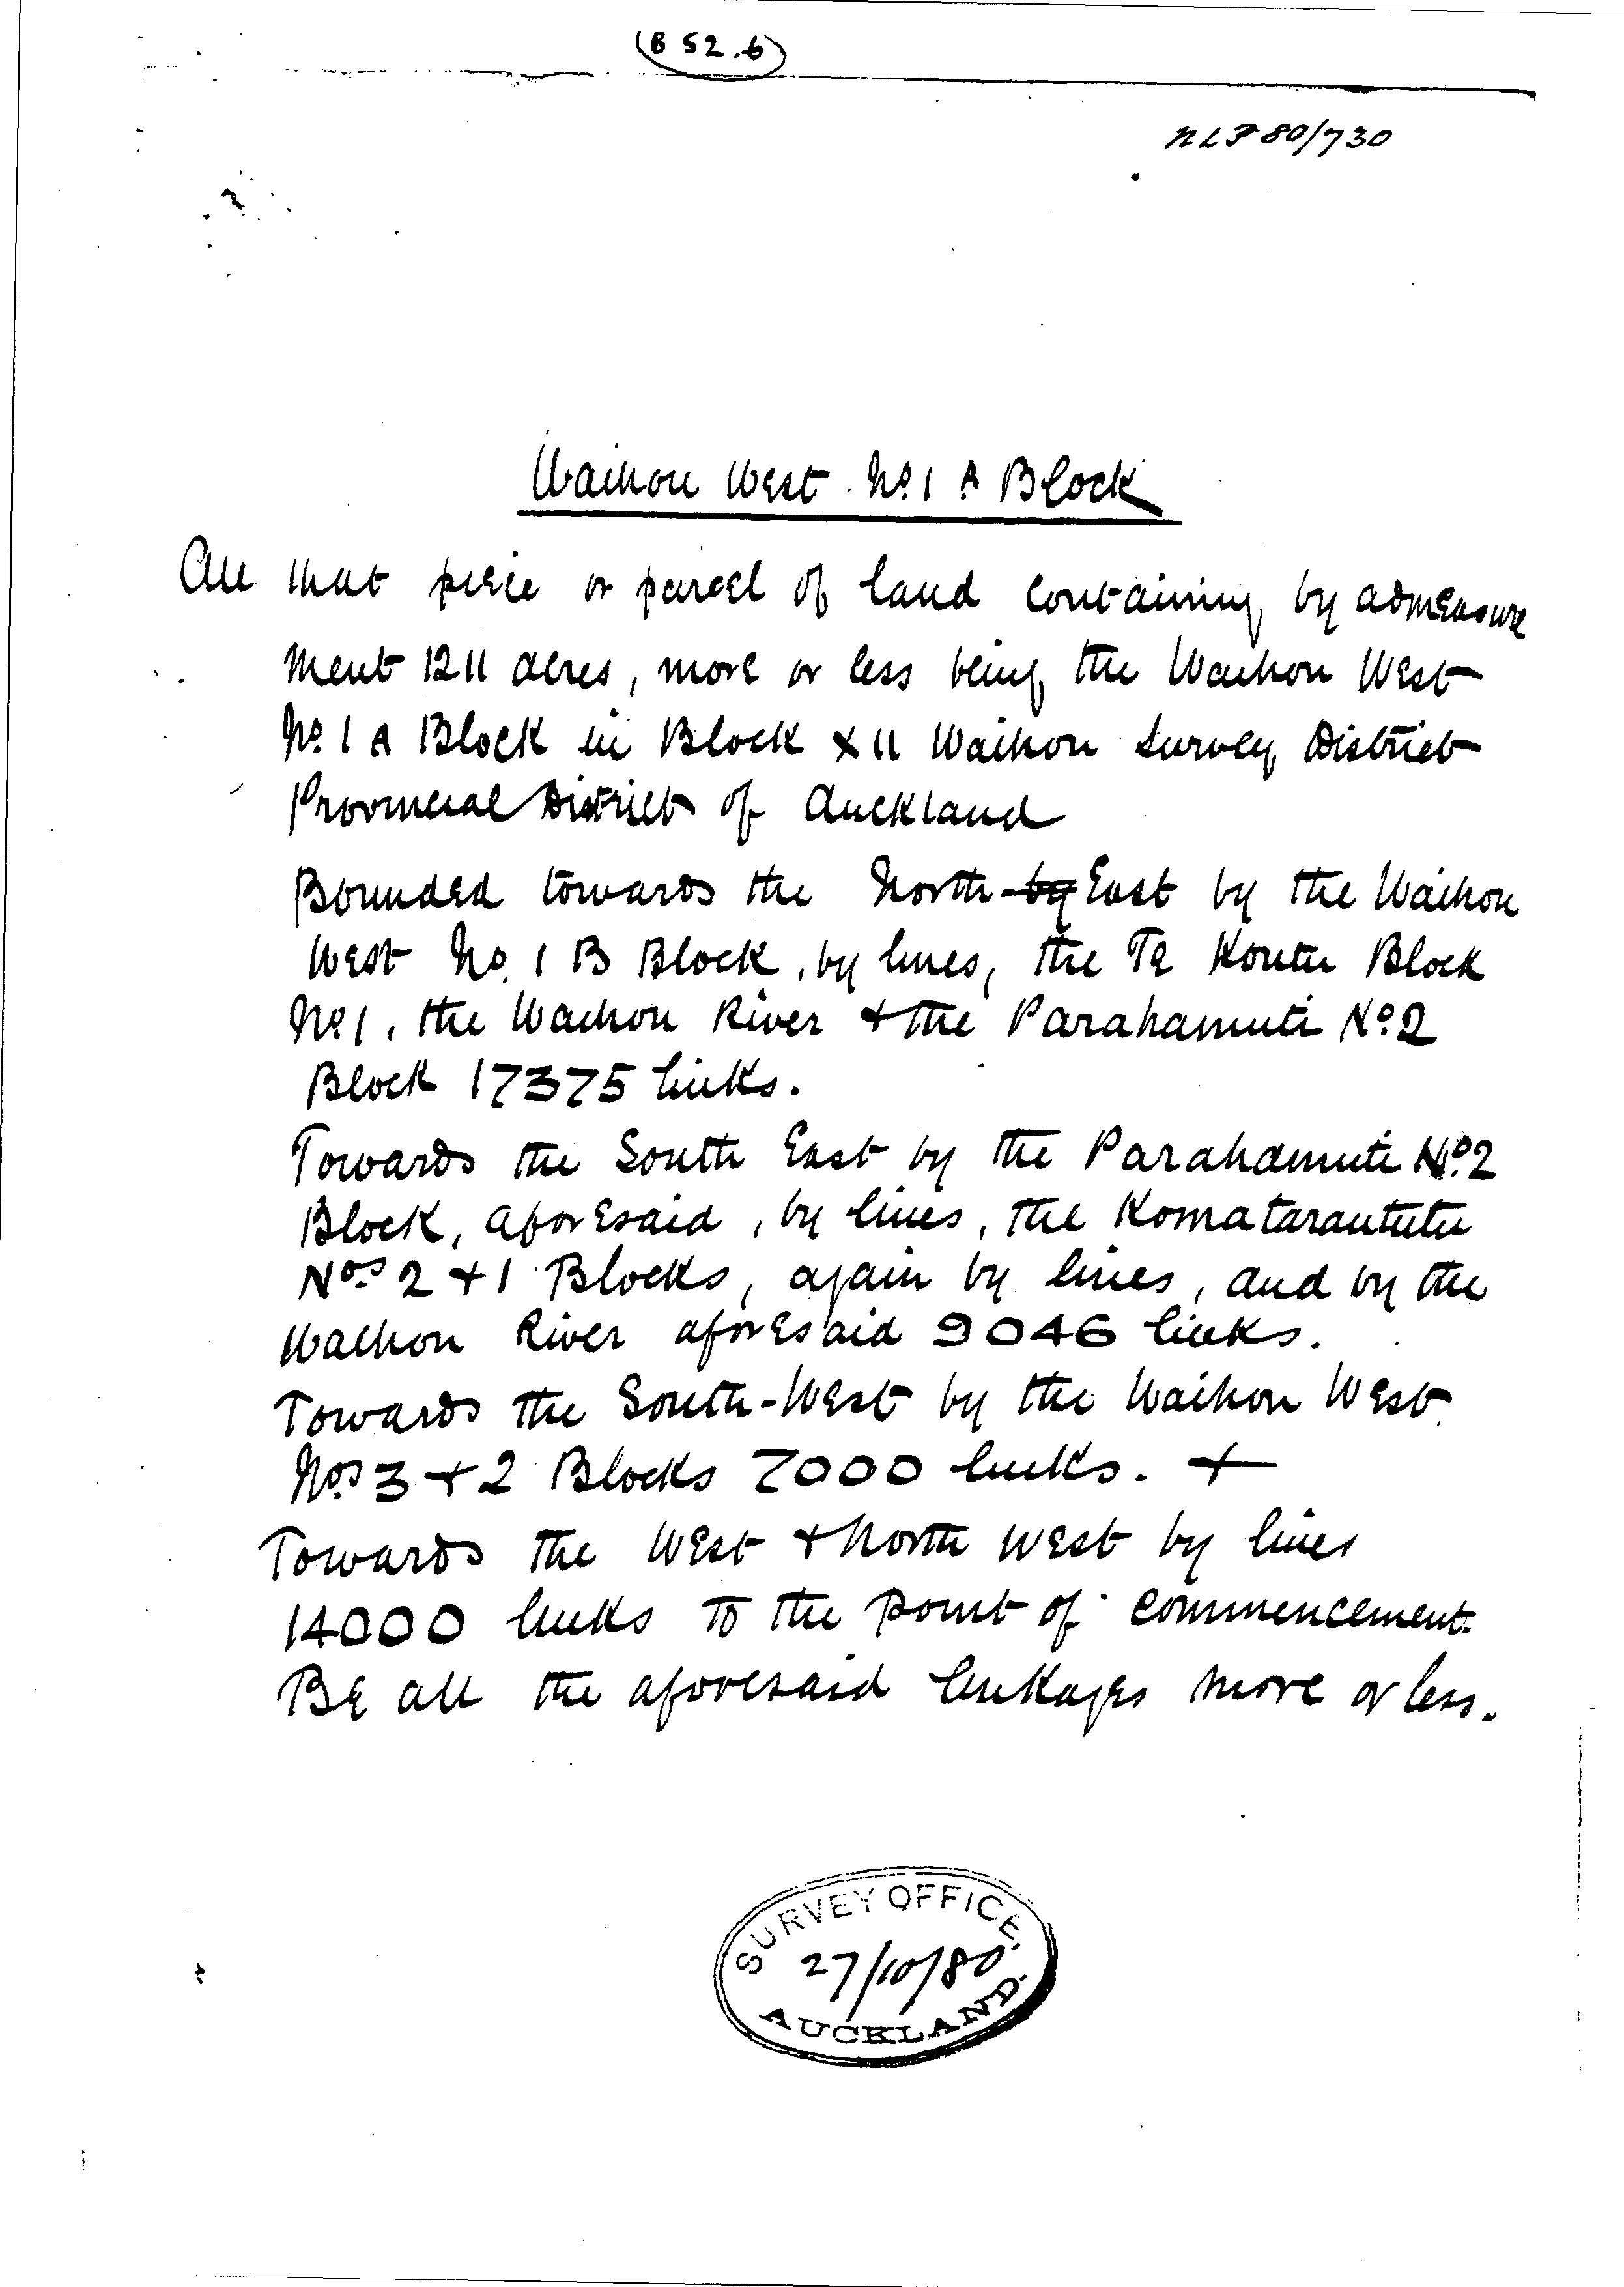 (B 52.6)
NLP 80/730
Waihou West No. 1 A Block
All that piece or parcel of land containing by admeasure
ment 1211 acres, more or less being the Waihou West
No. 1 A Block in Block XII Waihou Survey District
Provincial District of Auckland
Bounded towards the North-by East by the Waihou
West No. 1 B Block, by lines, the Te Koutu Block
No. 1, the Waihou River & the Parahamuti No. 2
Block 17375 links.
Towards the South East by the Parahamuti No. 2
Block, aforesaid, by lines, the Komataraututu
Nos. 2 & 1 Blocks, again by lines, and by the
Waihou River aforesaid 9046 links.
Towards the South-West by the Waihou West
Nos 3 & 2 Blocks 7000 links. &
Towards the West & North West by lines
14000 links to the point of commencement.
Be all the aforesaid linkages more or less.
SURVEY OFFICE.
27/10/80
AUCKLAND.